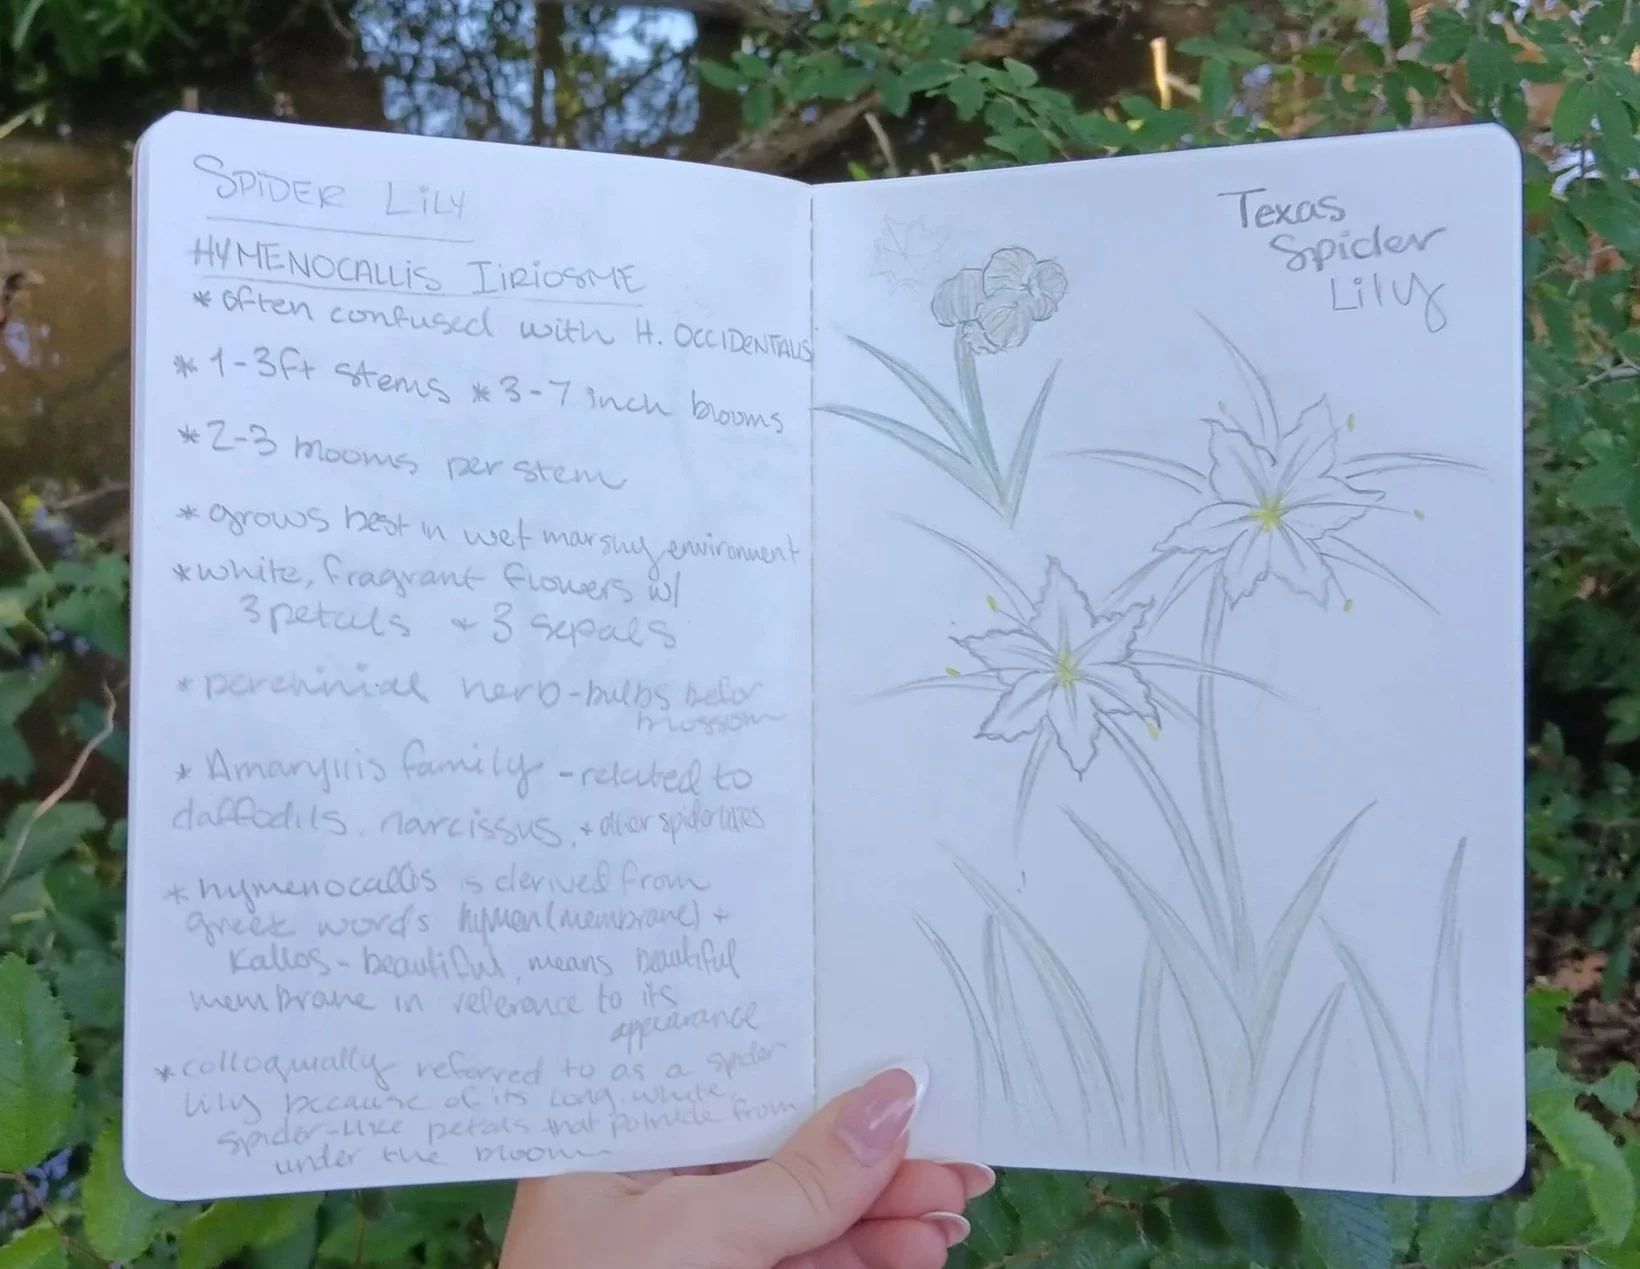 SPIDER LILY
HYMENOCALLIS IIRIOSME
* often confused with H. OCCIDENTALIS
* 1-3ft stems * 3-7 inch blooms
* 2-3 blooms per stem
* grows best in wet marshy environment
* white, fragrant flowers w/
3 petals + 3 sepals
* perennial herb - bulbs befor
blossom
* Amaryllis family - related to
daffodils, narcissus, + other spiderlilies
* hymenocallis is derived from
greek words hymen (membrane) +
Kallos - beautiful, means beautiful
membrane in reference to its
appearance
* colloqually referred to as a spider
lily because of its long white
spider-like petals that potrude from
under the bloom
Texas
Spider
Lily